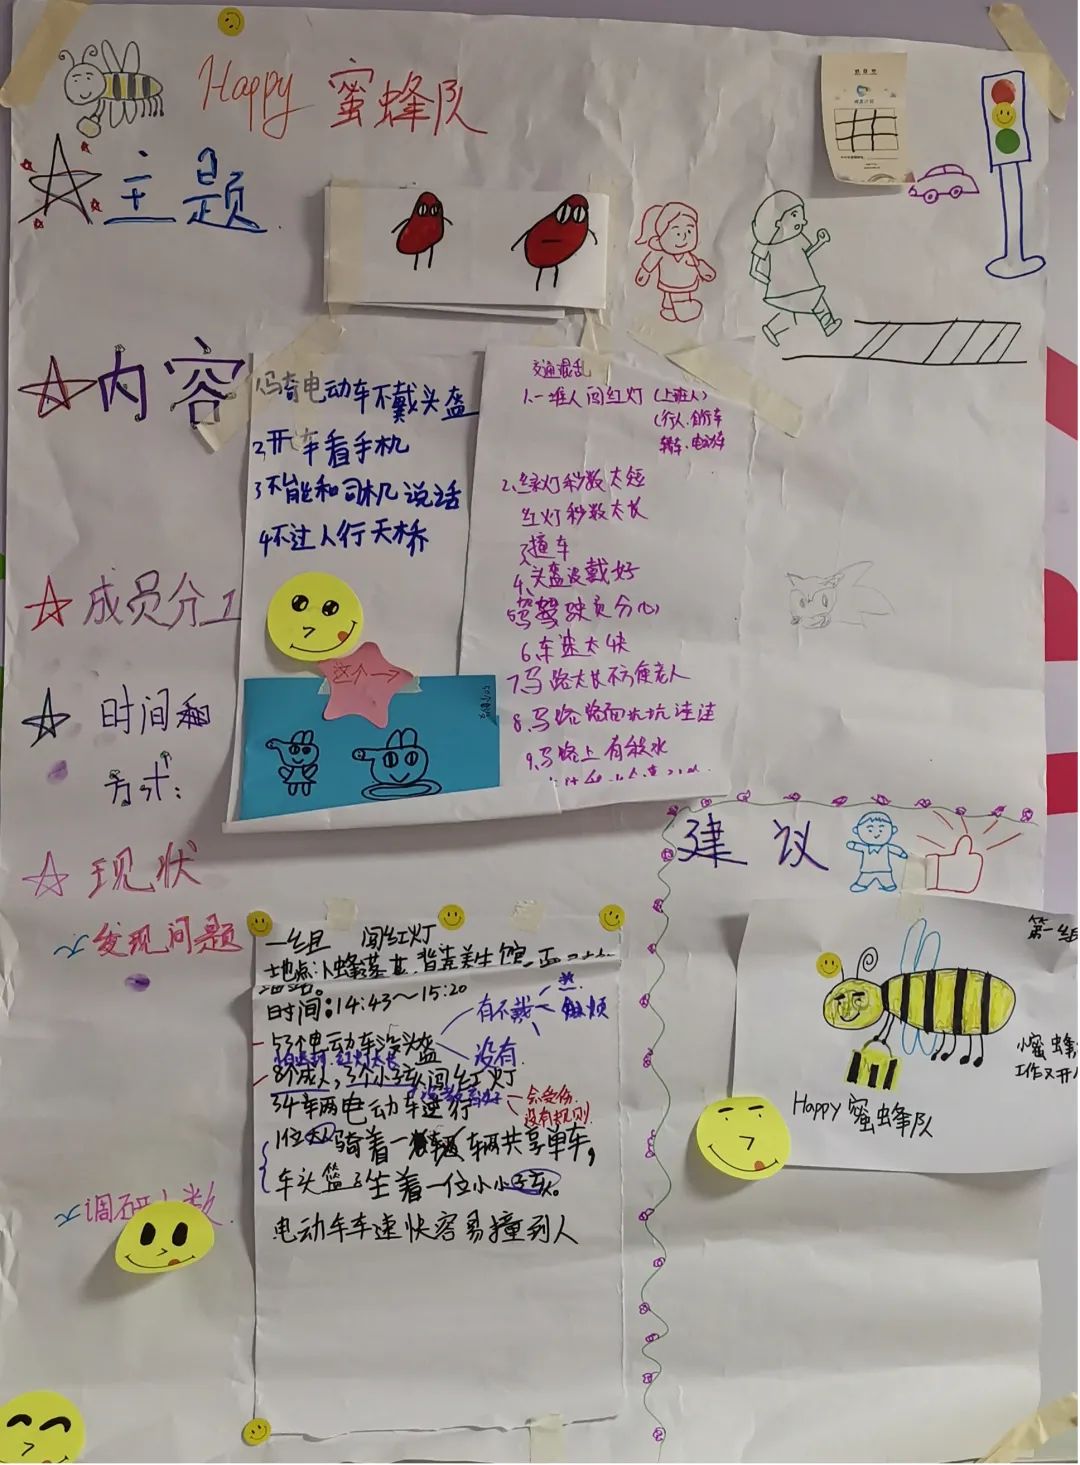 Happy 蜜蜂队
主题
内容
1.骑电动车不戴头盔
2开车看手机
3不能和司机说话
4不过人行天桥
交通混乱
1.一堆人闯红灯(上班人)
(行人.自行车
轿车.电动车
2.绿灯秒数太短
红灯秒数太长
3撞车
4、头盔没戴好
5驾驶员分心
6.车速太快
7.马路太长不方便老人
8.马路路面坑坑洼洼
9.马路上有积水
成员分工
这个→
时间和
方式:
现状
大发现问题
一组 闯红灯
地点:小蜂基地.背克美生馆
时间:14:43~15:20
有不戴
麻烦
53个电动车没头盔
没有
8个成人,3个小孩闯红灯
34车两电动车逆行
会受伤.
没有规则.
1位大人骑着一辆共享单车,
车头篮子坐着一位小小孩.
电动车车速快容易撞到人
大调研人数
建议
第一组
小蜜蜂
工作又开
Happy 蜜蜂队